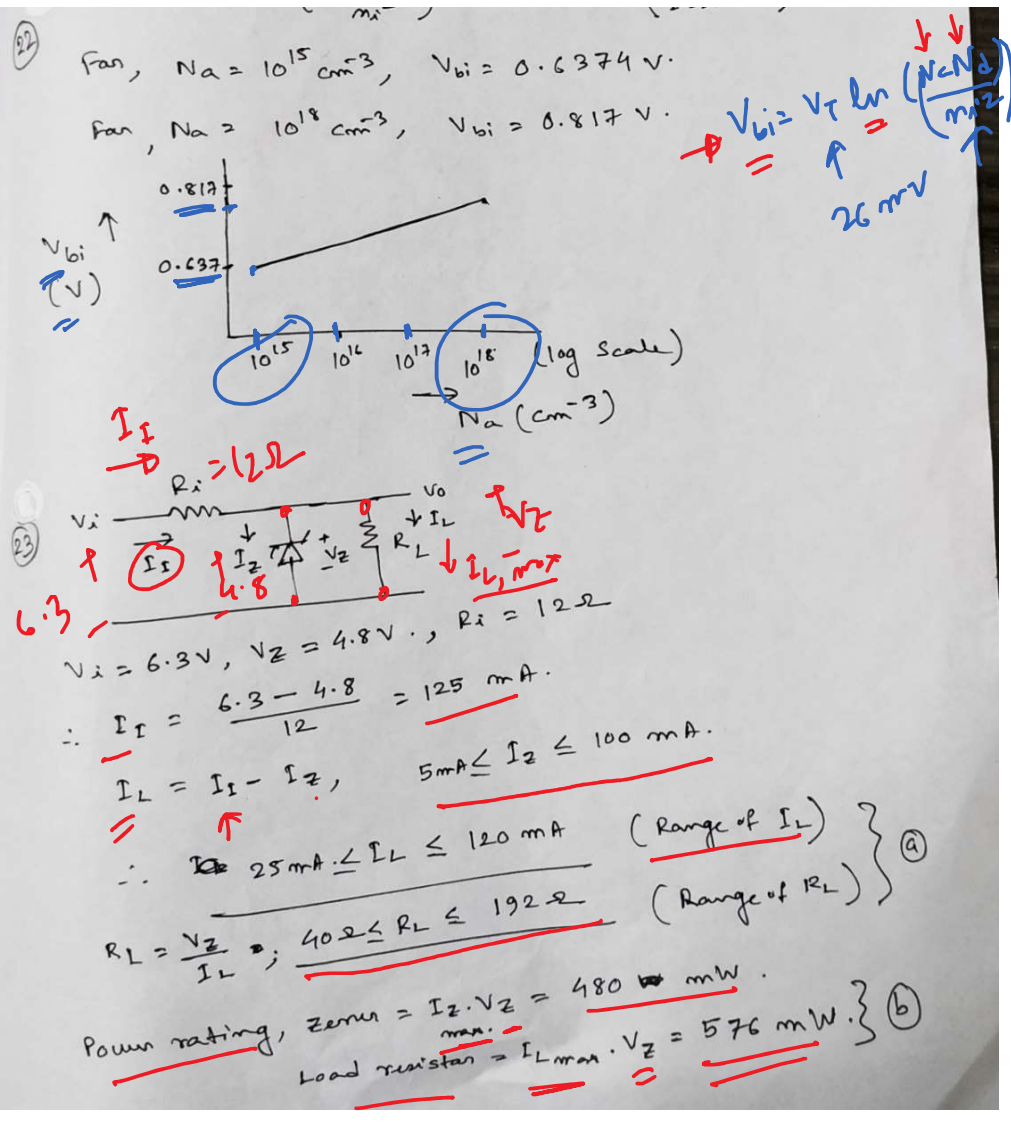 (22)
For, Na = 10^15 cm^-3, Vbi = 0.6374 V.
For, Na = 10^18 cm^-3, Vbi = 0.817 V.
→ Vbi = VT ln (NaNd / ni^2)
26 mV
0.817
Vbi ↑
(V)
0.637
10^15 10^16 10^17 10^18 (log scale)
→ Na (cm^-3)
II
Ri = 12Ω
(23)
Vi Vo
II IZ + VZ - RL ↓ IL VZ
4.8 IL, max
6.3
Vi = 6.3 V, VZ = 4.8 V., Ri = 12 Ω
∴ II = (6.3 - 4.8) / 12 = 125 mA.
IL = II - IZ, 5mA ≤ IZ ≤ 100 mA.
∴ 25 mA ≤ IL ≤ 120 mA (Range of IL)
(a)
RL = VZ / IL ; 40 Ω ≤ RL ≤ 192 Ω (Range of RL)
Power rating, Zener = IZ max. · VZ = 480 mW.
(b)
Load resistor = IL max · VZ = 576 mW.